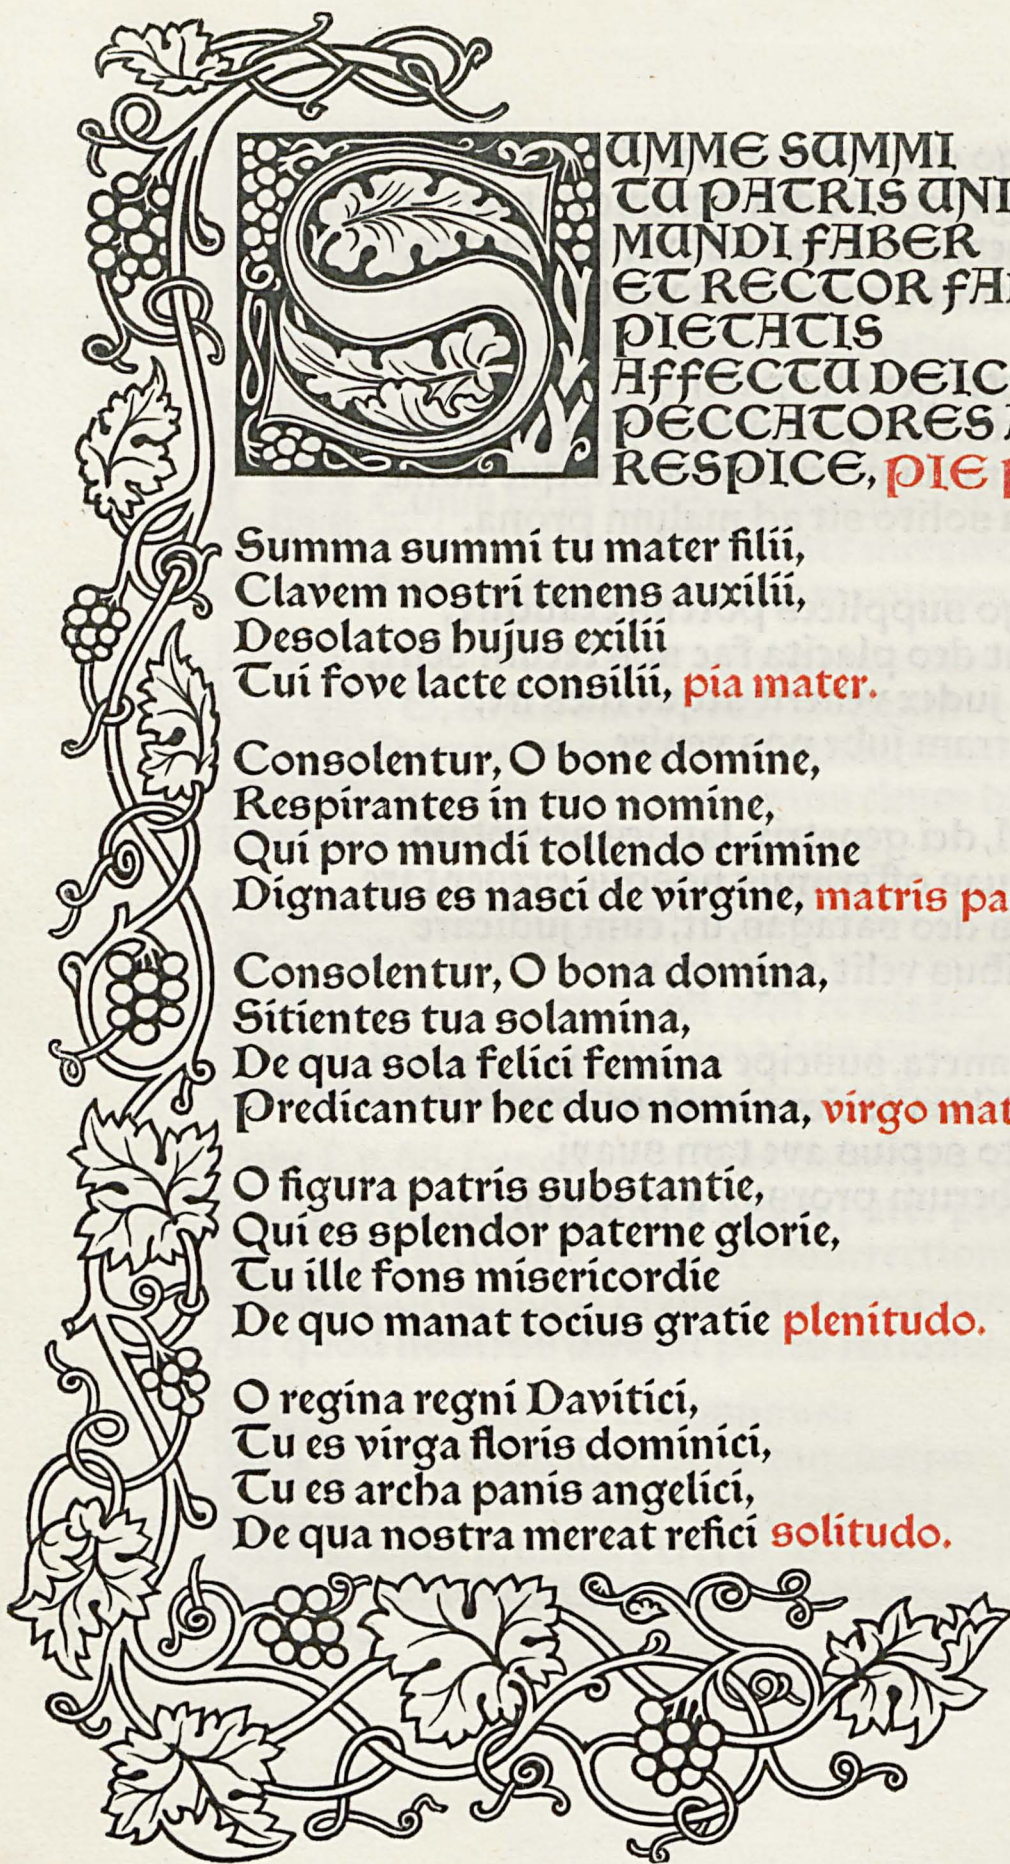 SUMME SUMMI
TU PATRIS UNI
MUNDI FABER
ET RECTOR
PIETATIS
AFFECTU
PECCATORES
RESPICE, PIE
Summa summi tu mater filii,
Clavem nostri tenens auxilii,
Desolatos hujus exilii
Tui fove lacte consilii, pia mater.
Consolentur, O bone domine,
Respirantes in tuo nomine,
Qui pro mundi tollendo crimine
Dignatus es nasci de virgine, matris
Consolentur, O bona domina,
Sitientes tua solamina,
De qua sola felici femina
Predicantur hec duo nomina, virgo
O figura patris substantie,
Qui es splendor paterne glorie,
Tu ille fons misericordie
De quo manat tocius gratie plenitudo.
O regina regni Davitici,
Tu es virga floris dominici,
Tu es archa panis angelici,
De qua nostra mereat refici solitudo.